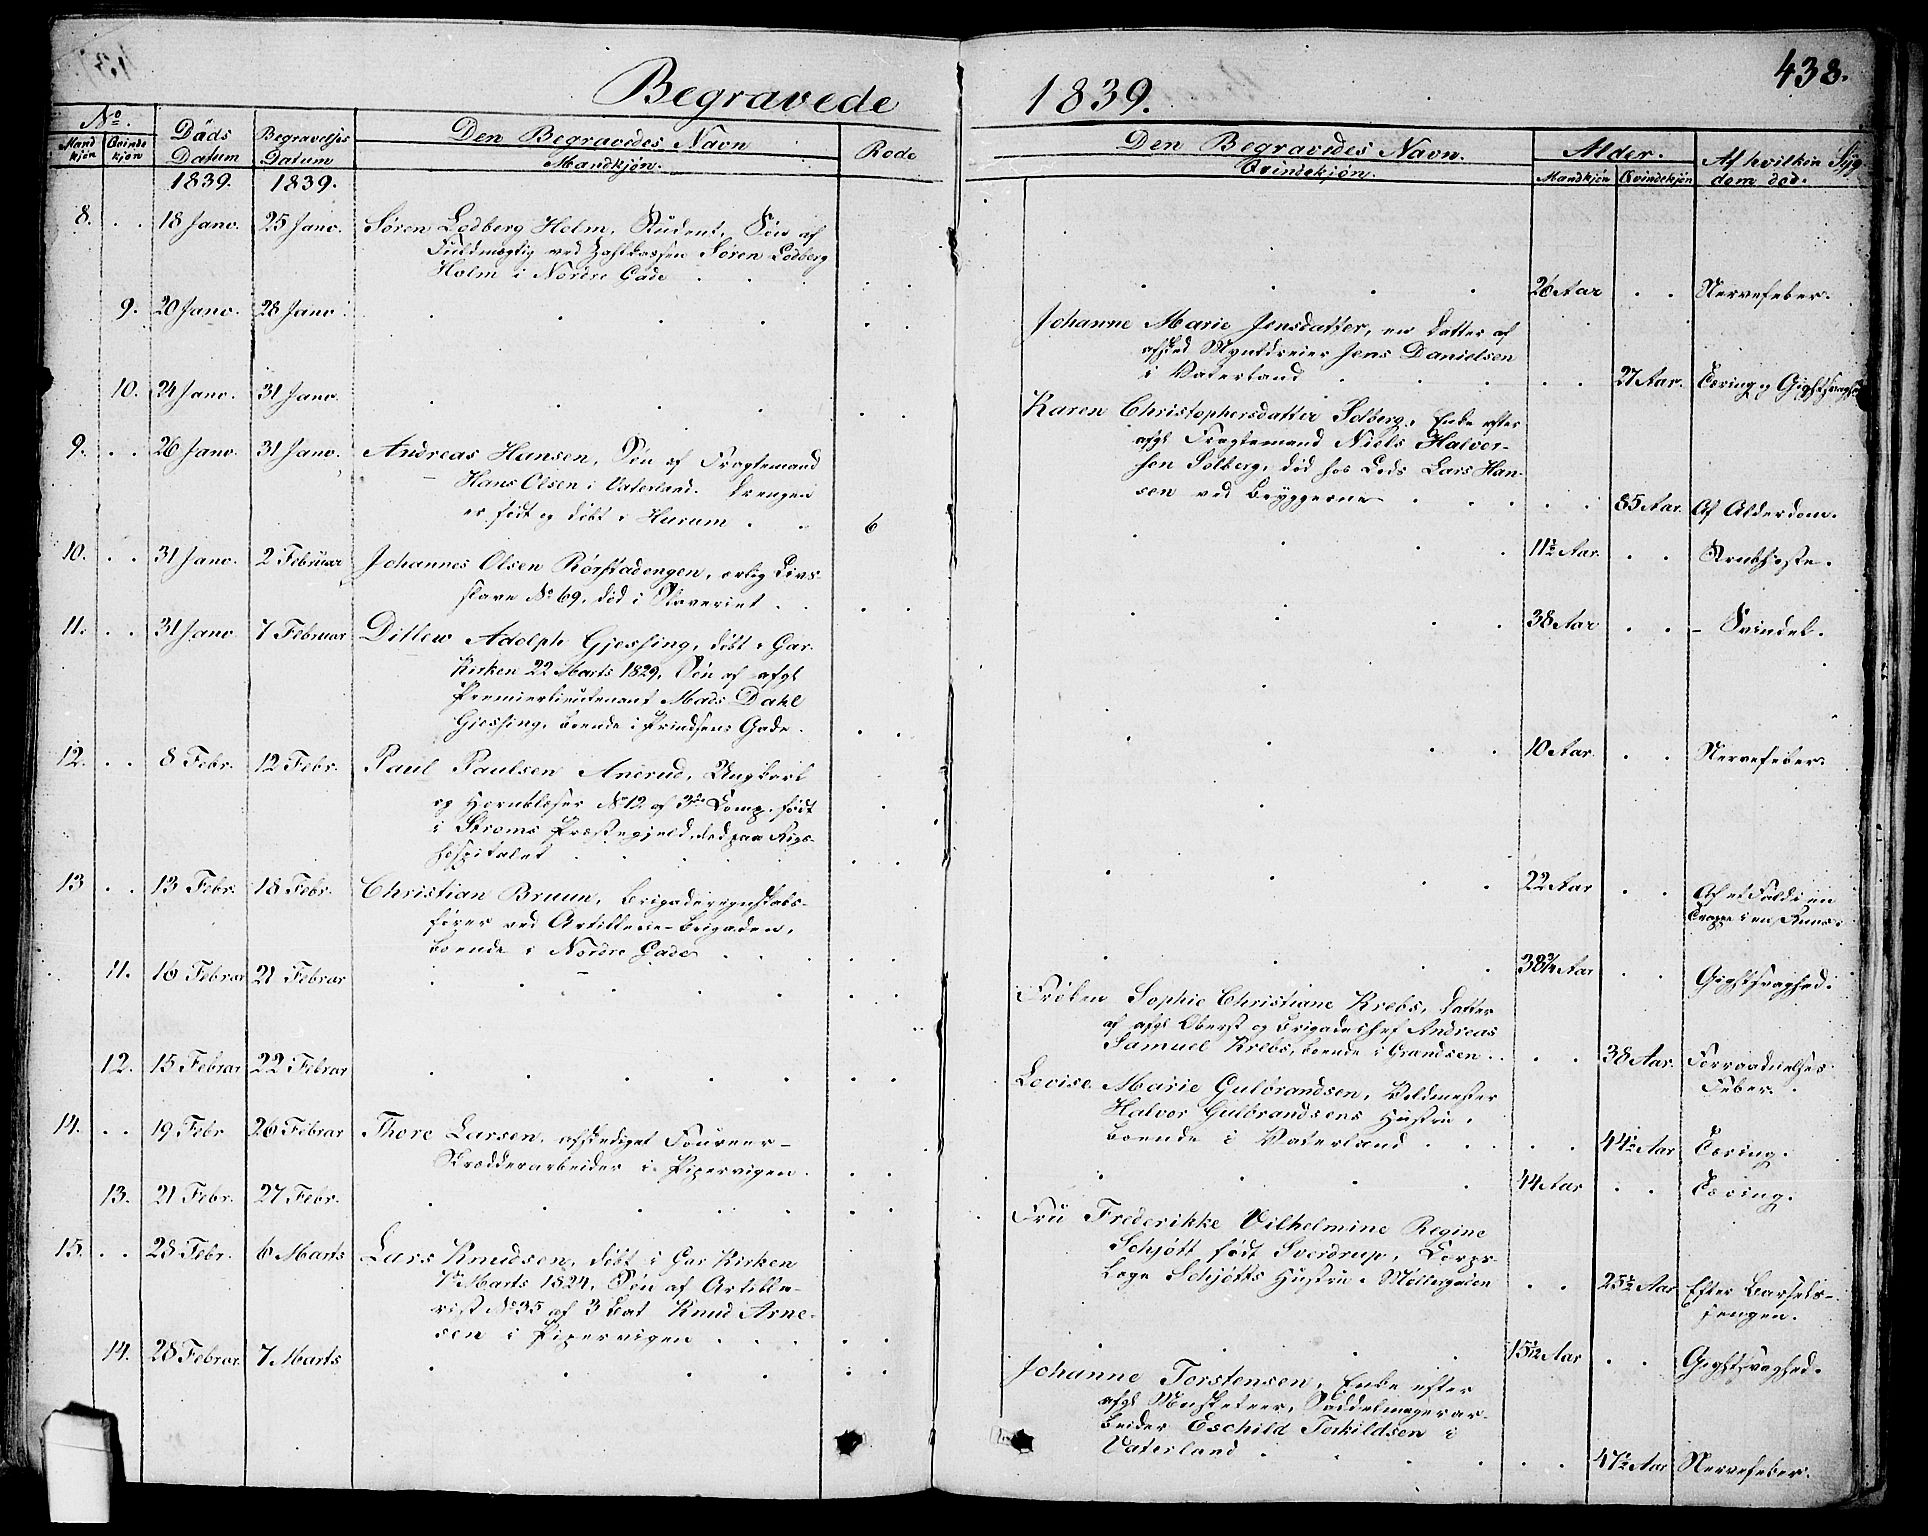 438.
Begravede
1839.
No.
Mandkjøn
Qvindekjøn
Døds Datum
Begravelses Datum
Den Begravedes Navn
Mandkjøn.
Rode
Den Begravedes Navn.
Qvindekjøn.
Alder.
Mandkjøn
Qvindekjøn
Af hvilken Sygdom død.
1839. 1839.
8. 18 Janv. 25 Janv. Søren Lodberg Holm, Student, Søn af
Fuldmægtig ved Zahlkassen Søren Lodberg
Holm i Nordre Gade
26 Aar Nervefeber.
9. 20 Janv. 28 Janv.
Johanne Marie Jensdatter, en Datter af
afsked Myntdreier Jens Danielsen
i Vaterland
27 Aar. Tæring og Gigtsvaghed
10. 24 Janv. 31 Janv.
Karen Christophersdatter Solberg, Enke efter
afgl Fragtemand Niels Halvor-
sen Solberg, død hos Lods Lars Han-
sen ved Bryggerne
85 Aar. Af Alderdom.
9. 26 Janv. 31 Janv. Andreas Hansen, Søn af Fragtemand
Hans Olsen i Vaterland. Drengen
er født og døbt i Hurum
6
11½ Aar. Krubhoste.
10. 31 Janv. 2 Februar Johannes Olsen Rørstadengen, ærlig Livs-
slave No 69, død i Slaveriet
38 Aar Svindel.
11. 31 Janv. 7 Februar Dittew Adolph Gjessing, døbt i Gar.
Kirken 22 Marts 1829, Søn af afgl
Premierlieutenant Mads Dahl
Gjessing, boende i Prindsens Gade.
10 Aar. Nervefeber
12. 8 Febr. 12 Febr. Paul Paulsen Anerud, Ungkarl
og Hornblæser No 12 af 3die Comp. født
i Strøms Præstegjeld, død paa Rigs-
hospitalet
22 Aar Af et Fald i en
Trappe i en Ruus.
13 13 Febr. 18 Febr. Christian Bruun, Brigaderegnskabs-
fører ved Artillerie-Brigaden,
boende i Nordre Gade
38¾ Aar Gigtsvaghed.
11. 16 Februar 21 Februar
Frøken Sophie Christiane Krebs, Datter
af afgl Oberst og Brigadechef Andreas
Samuel Krebs, boende i Grændsen
38 Aar. Forraadnelses
Feber.
12. 15 Februar 22 Februar
Lovise Marie Gulbrandsen, Veldmester
Halvor Gulbrandsens Hustru,
boende i Vaterland
44½ Aar Tæring.
14. 19 Febr. 26 Februar Thore Larsen, afskediget Foureer-
Skrædderarbeider i Pipervigen.
44 Aar Tæring.
13. 21 Febr. 27 Febr.
Fru Frederikke Vilhelmine Regine
Schjøtt født Sverdrup, Corps-
læge Schjøtts Hustru i Møllergaden
25½ Aar Efter Barsels-
sengen.
15. 28 Febr. 6 Marts Lars Knudsen, døbt i Gar Kirken
7de Marts 1824, Søn af Artille-
rist No 35 af 3 Bat Knud Arne-
sen i Pipervigen
15½ Aar Gigtsvaghed.
14. 28 Februar. 7 Marts
Johanne Torstensen, Enke efter
afgl Musketeer, Saddelmagerar-
beider Eschild Torkildsen i
Vaterland
47½ Aar Nervefeber.